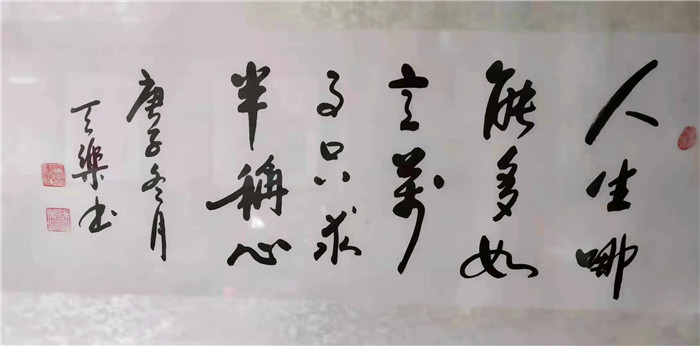 人生哪
能多如
意萬
事只求
半稱心
庚子冬月
天樂书